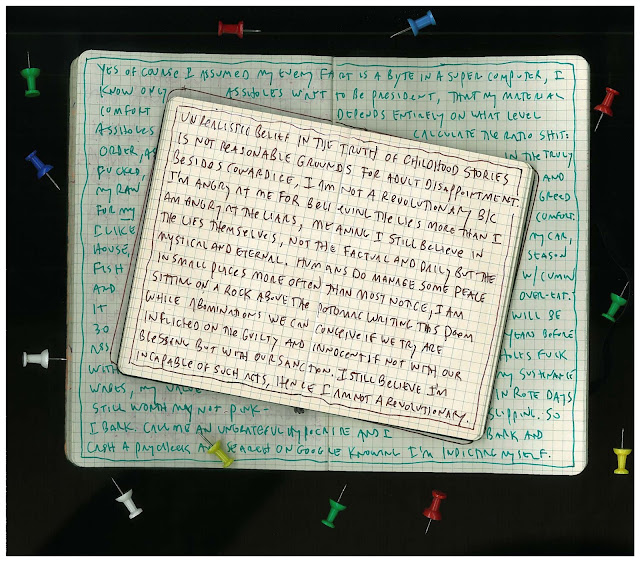 YES OF COURSE I ASSUMED MY EVERY FART IS A BYTE IN A SUPER COMPUTER, I
KNOW ONLY ASSHOLES WANT TO BE PRESIDENT, THAT MY MATERIAL
COMFORT DEPENDS ENTIRELY ON WHAT LEVEL
ASSHOLES CALCULATE THE RATIO SHIT:
ORDER, IN THE TRULY
FUCKED, AND
MY RAW GREED
FOR MY COMFORT.
I LIKE MY CAR,
HOUSE, SEASON
FISH W/ CUMIN
AND OVER-EAT.
IT WILL BE
30 YEARS BEFORE
ASS FUCK
WITH MY SUSTENANCE
WAGES, MY VALUE IN ROTE DAYS
STILL WORTH MY NOT PINK- SLIPPING. SO
I BARK. CALL ME AN UNGRATEFUL HYPOCRITE AND I BARK AND
CASH A PAYCHECK AND SEARCH ON GOOGLE KNOWING I'M INDICTING MYSELF.
UNREALISTIC BELIEF IN THE TRUTH OF CHILDHOOD STORIES
IS NOT REASONABLE GROUNDS FOR ADULT DISAPPOINTMENT.
BESIDES COWARDICE, I AM NOT A REVOLUTIONARY B/C
I'M ANGRY AT ME FOR BELIEVING THE LIES MORE THAN I
AM ANGRY AT THE LIARS, MEANING I STILL BELIEVE IN
THE LIES THEMSELVES, NOT THE FACTUAL AND DAILY BUT THE
MYSTICAL AND ETERNAL. HUMANS DO MANAGE SOME PEACE
IN SMALL PLACES MORE OFTEN THAN MOST NOTICE, I AM
SITTING ON A ROCK ABOVE THE POTOMAC WRITING THIS POEM
WHILE ABOMINATIONS WE CAN CONCEIVE IF WE TRY ARE
INFLICTED ON THE GUILTY AND INNOCENT IF NOT WITH OUR
BLESSING BUT WITH OUR SANCTION. I STILL BELIEVE I'M
INCAPABLE OF SUCH ACTS, HENCE I AM NOT A REVOLUTIONARY.